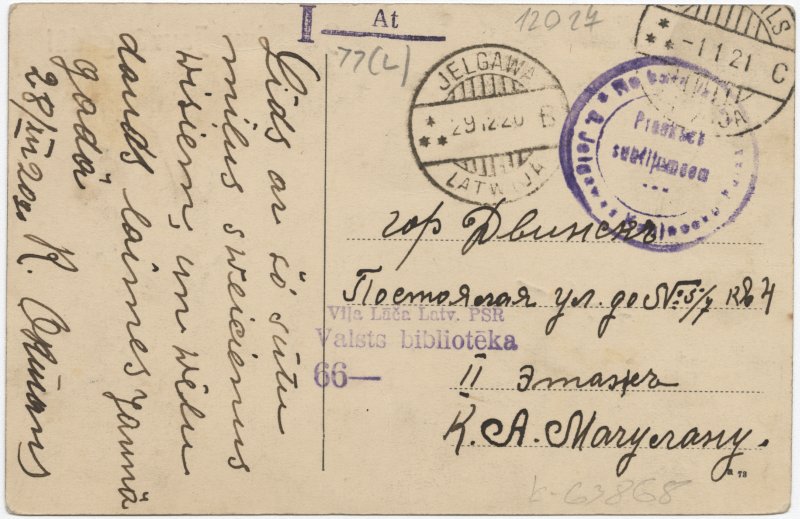 I At
12027
77(L)
JELGAWA
29 12 20 B
LATWIJA
-1 1 21 C
Pienahk
suhtijumeem
гор Двинскъ
Постоялая ул. до № 5/7 кв 4
II этажъ
К. А. Мачулану.
Viļa Lāča Latv. PSR
Valsts bibliotēka
66—
73
k-63868
Lids ar šo sūtu
miļus sweicienus
wisiem, un wēlu
daudz laimes jaunā
gadā
28/XII 20